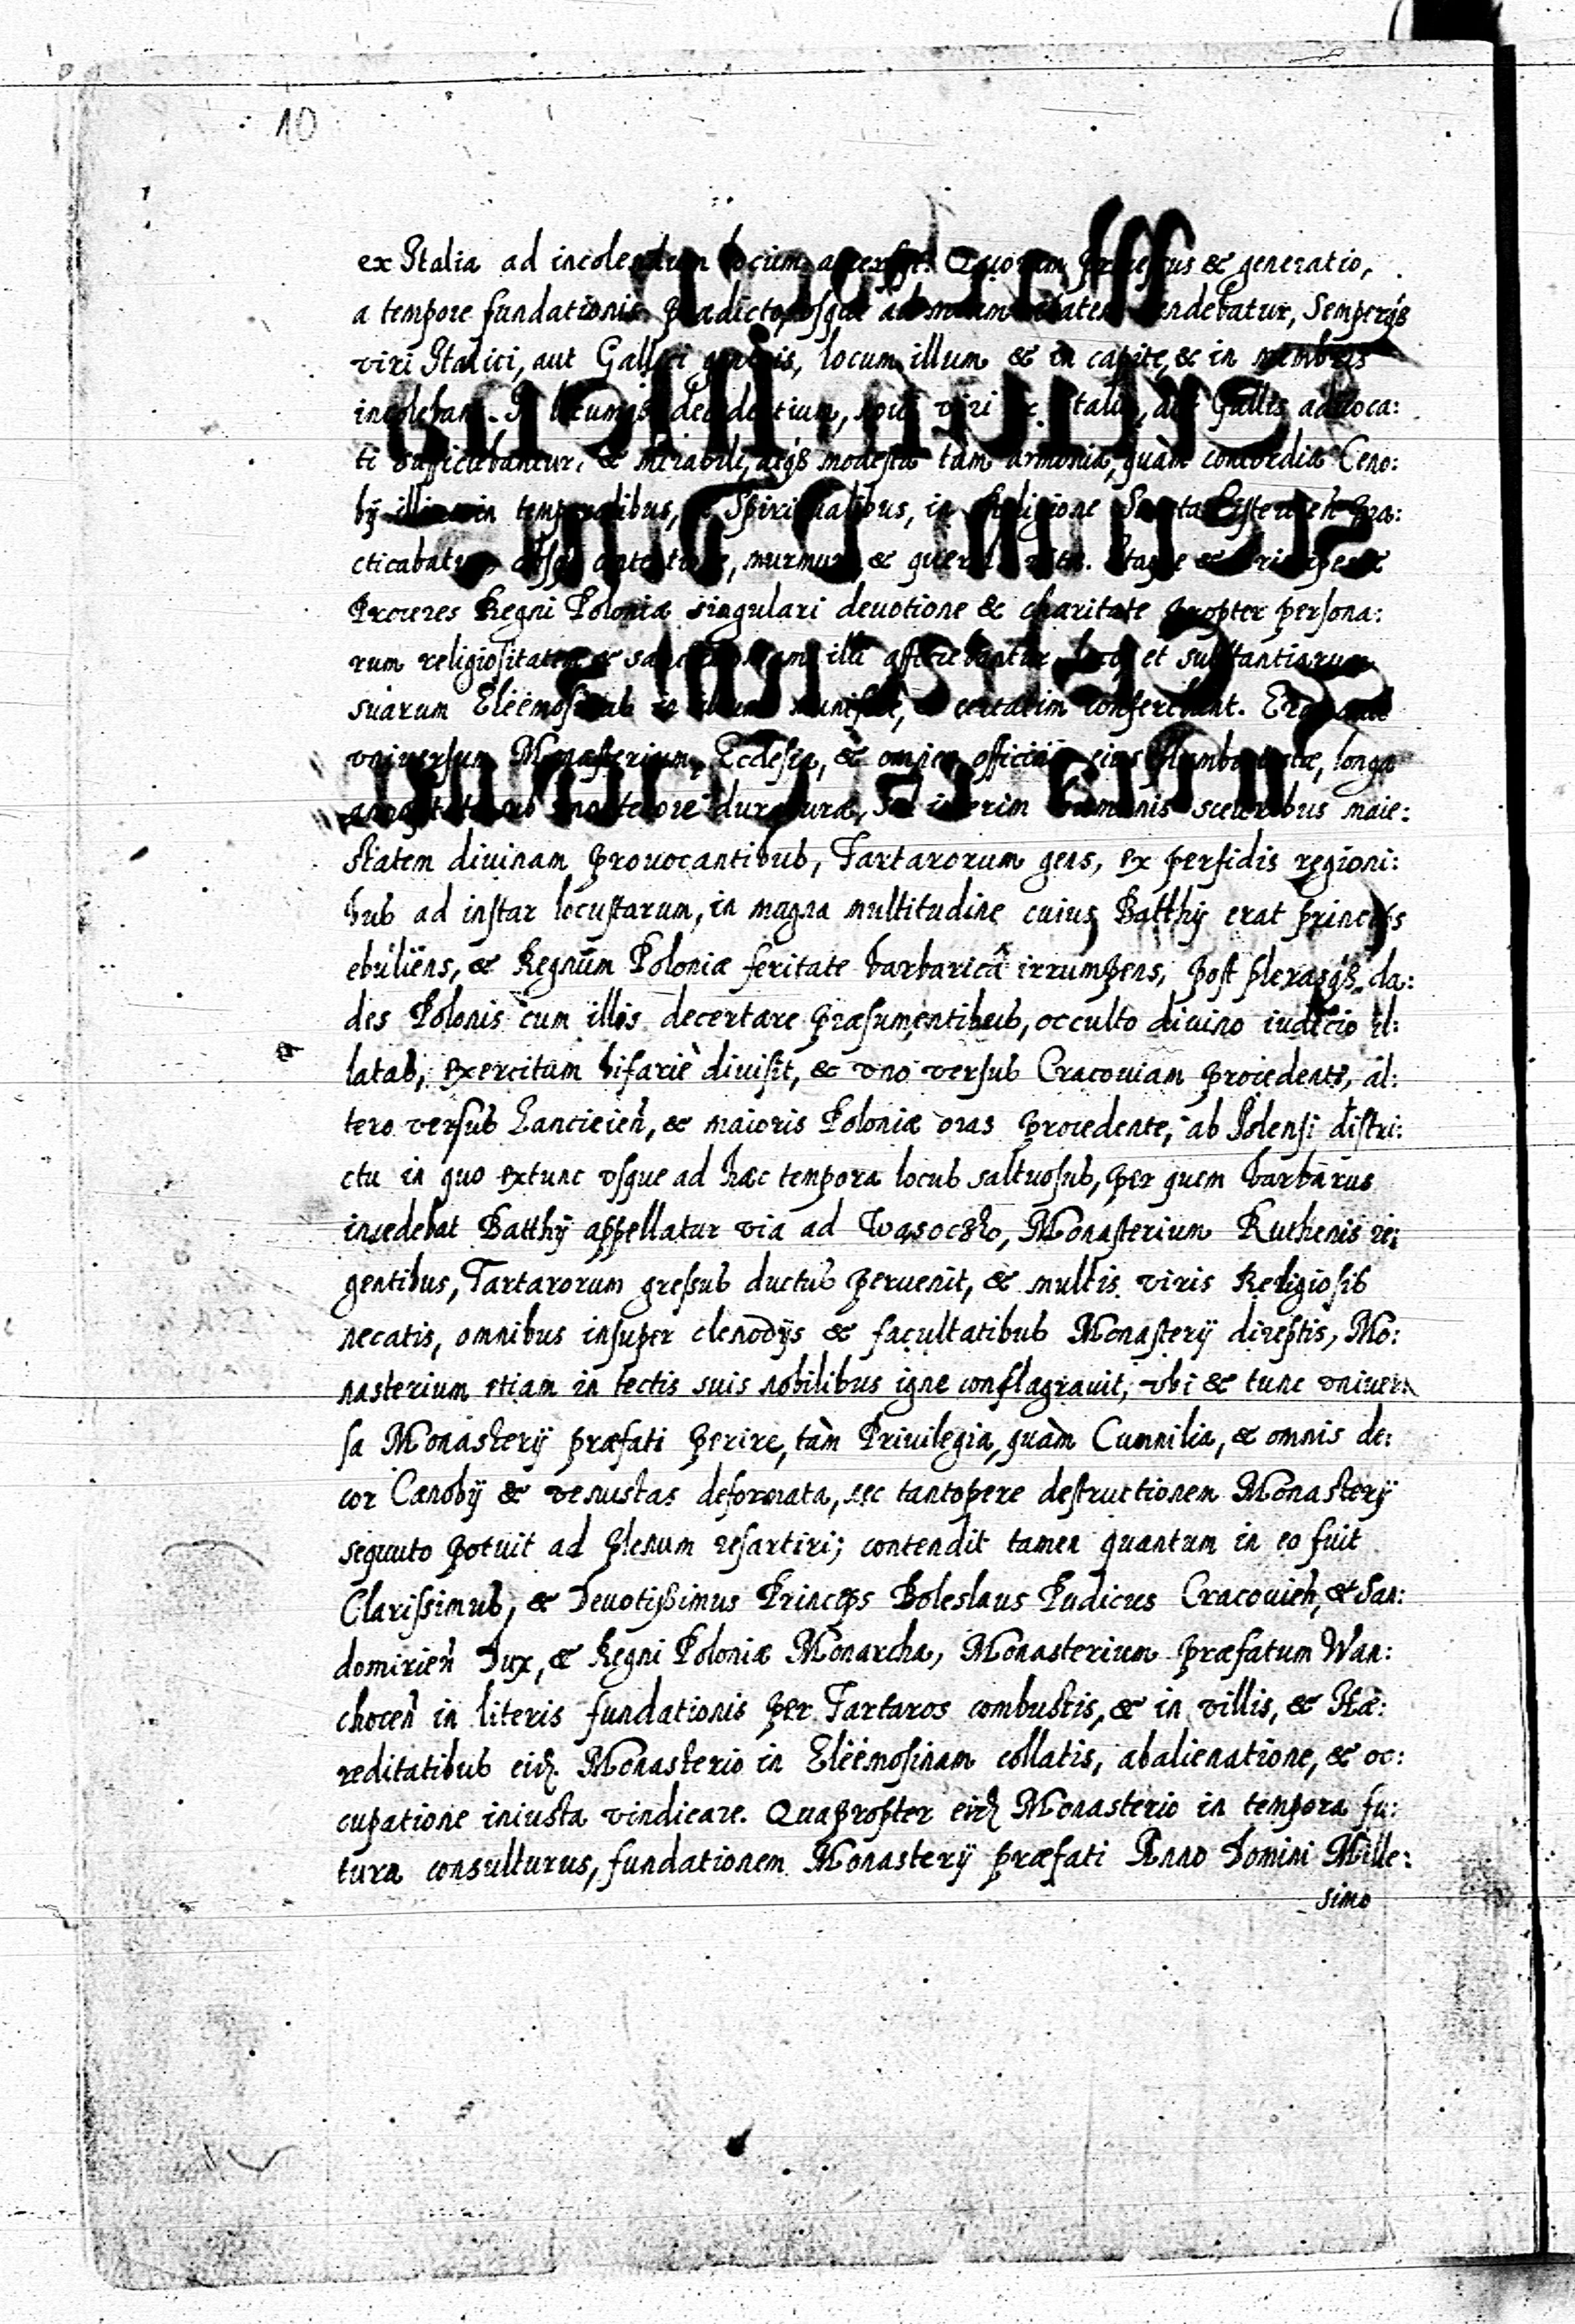 10
ex Italia ad incolendum locum accersiit. Quorum processus & generatio,
a tempore fundationis praedicto, usque ad meam aetatem tendebatur, Semperq3
viri Italici, aut Gallici generis, locum illum & in capite, & in membris
incolebant. In locumq3 decedentium, novi viri ex Italia, aut Gallis advoca:
ti sufficiebantur, & mirabili, atq3 modesta tam armonia, quàm concordia Ceno:
bij illius in temporalibus, & Spiritualibus, in Religione Sancta Cistercien̄ pra:
cticabatur, absq3 contentione, murmure, & querela
Proceres Regni Poloniæ singulari devotione & charitate propter persona:
rum religiositatem & illi afficiebantur loco et substantiarum
suarum Eleëmosinas in illum munificè, & certatim conferebant.
vniversum Monasterium, Ecclesia, & omnes officinæ eius longa
duraturæ, Sed interim humanis sceleribus maie:
statem diuinam provocantibus, Tartarorum gens, ex persidis regioni:
bus ad instar locustarum, in magna multitudine cuius Batthij erat princeps
ebuliens, & Regnum Poloniæ feritate barbaricâ irrumpens, post plerasq3 cla:
des Polonis cum illis decertare præsumentibus, occulto divino iudicio il:
latas, exercitum bifariè divisit, & vno versus Cracoviam procedente, al:
tero versus Lancicien̄, & maioris Poloniæ oras procedente, ab Polensi distri:
ctu in quo extunc vsque ad hæc tempora locus saltuosus, per quem barbarus
insedebat Batthij appellatur via ad Wąsoczko, Monasterium Ruthenis re:
gentibus, Tartarorum gressus ductus pervenit, & multis viris Religiosis
necatis, omnibus insuper clenodijs & facultatibus Monasterij direptis, Mo:
nasterium etiam in tectis suis nobilibus igne conflagravit, vbi & tunc vniver:
sa Monasterij præfati perire, tàm Privilegia, quàm Cumnilia, & omnis de:
cor Cænobij & venustas deformata, nec tantopere destructionem Monasterij
sequuto potuit ad plenum resartiri; contendit tamen quantum in eo fuit
Clarissimus, & Devotissimus Princeps Boleslaus Pudicus Cracovien̄, & San:
domirien̄ Dux, & Regni Poloniæ Monarcha, Monasterium præfatum Wan:
chocen̄ in literis fundationis per Tartaros combustis, & in villis, & Hæ:
reditatibus eid. Monasterio in Eleëmosinam collatis, abalienatione, & oc:
cupatione iniusta vindicare. Quapropter eid. Monasterio in tempora fu:
tura consulturus, fundationem Monasterij præfati Anno Domini Mille:
simo